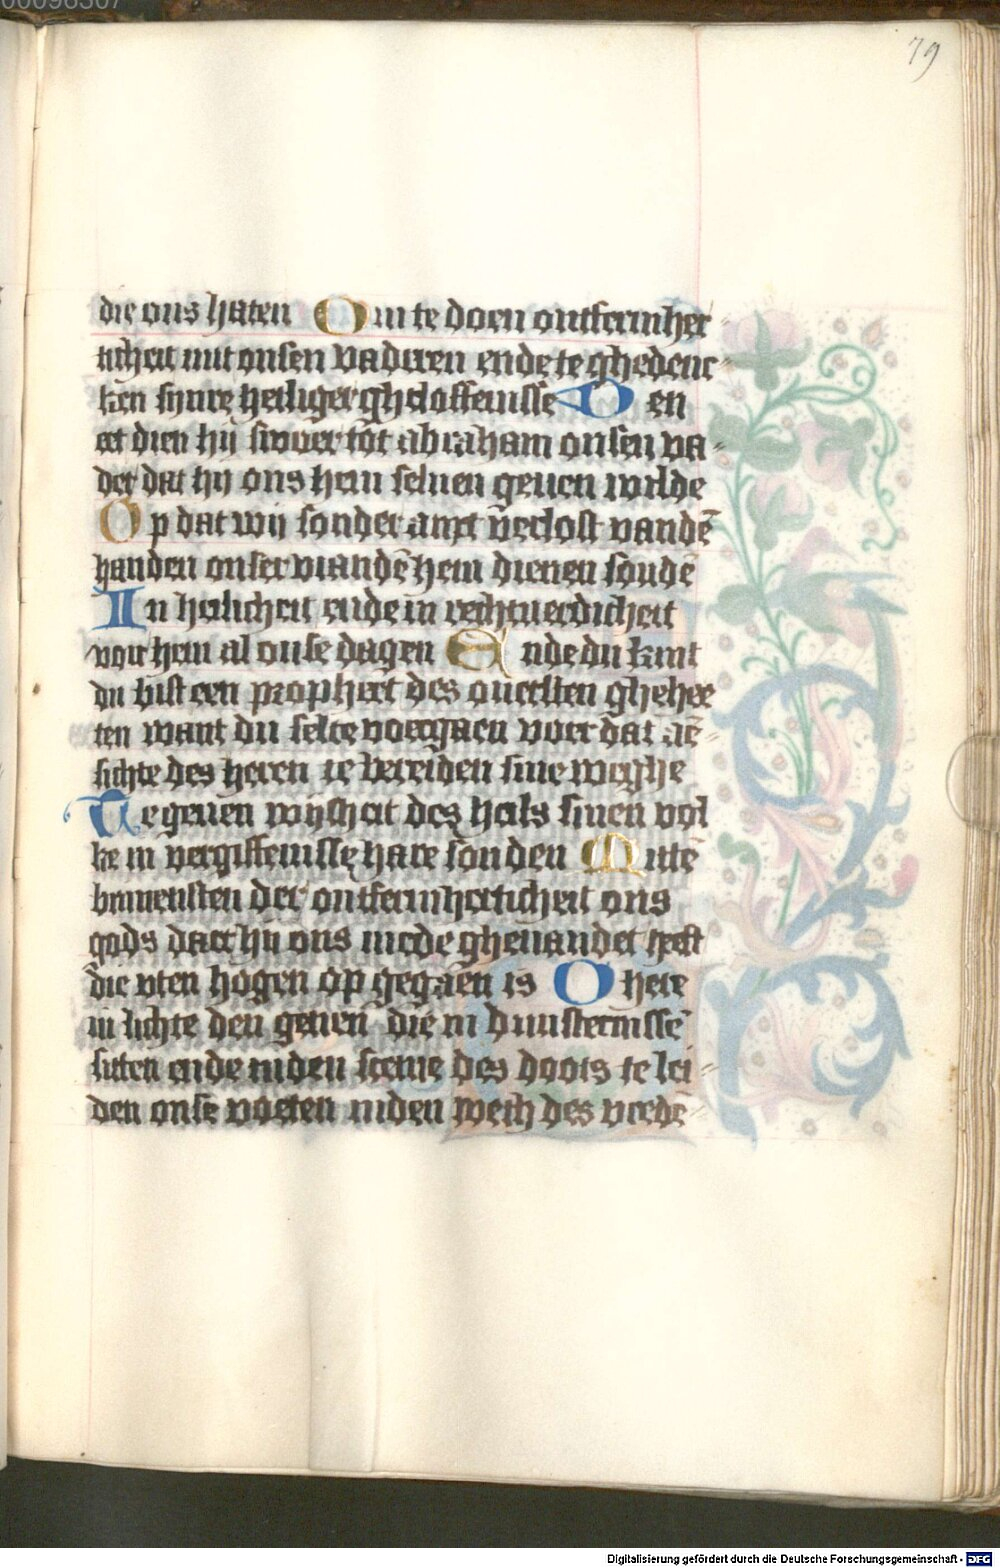 00098307
79
die ons haten Om te doen ontfermher
ticheit mit onsen vaderen ende te ghedenc
ken sijnre heiliger gheloffenisse Den
eet dien hij swoer tot abraham onsen va
der dat hij ons hem seluen geuen wilde
Op dat wij sonder anxt v̄erlost vandē
handen onser viandē hem dienen soudē
In heilicheit ende in rechtuerdicheit
voir hem al onse dagen Ende du kint
du bist een propheet des ouersten ghehee
ten want du selte voergaen voer dat āē
sichte des heren te bereiden sine weghe
Te geuen wijsheit des heils sinen vol
ke in vergiffenisse hare sonden Mitte
binnensten der ontfermherticheit ons
gods daer hij ons mede gheuandet heeft
die vten hogen op gegaen is O here
in lichte den genen die in duusternissē
sitten ende inden sceme des doots te lei
den onse voeten inden wech des vredē
Digitalisierung gefördert durch die Deutsche Forschungsgemeinschaft - DFG